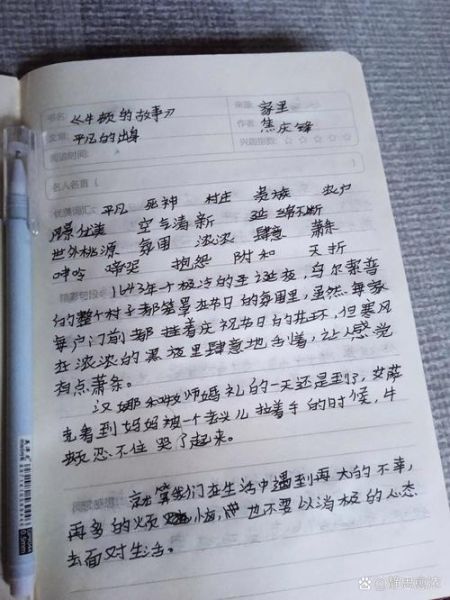 书名: 《牛顿的故事》 来源: 家里
文章: 平凡的出身 作者: 焦庆锋
阅读时间: 兴趣指数: ☆☆☆☆☆
名人名言 (
优美词汇: 平凡 死神 村庄 贵族 农户
风景优美 空气清新 延绵不断
世外桃源 氛围 浓浓 肆意 萧条
呻吟 啼哭 抱怨 附和 夭折
1643年一个极冷的圣诞夜,乌尔索普
的整个村子都笼罩在节日的氛围里,虽然每家
每户门前都挂着庆祝节日的花环,但寒风
在浓浓的黑夜里肆意地击掴,让人感觉
有点萧条。
汉娜和牧师婚礼的一天还是到了,艾萨
克看到妈妈被一个老头儿拉着手的时候,牛
顿忍不住哭了起来。
阅读感悟: 就算我们在生活中遇到再大的不幸,
再多的烦恼,也不要以消极的心态
去面对生活。
静思煎浓